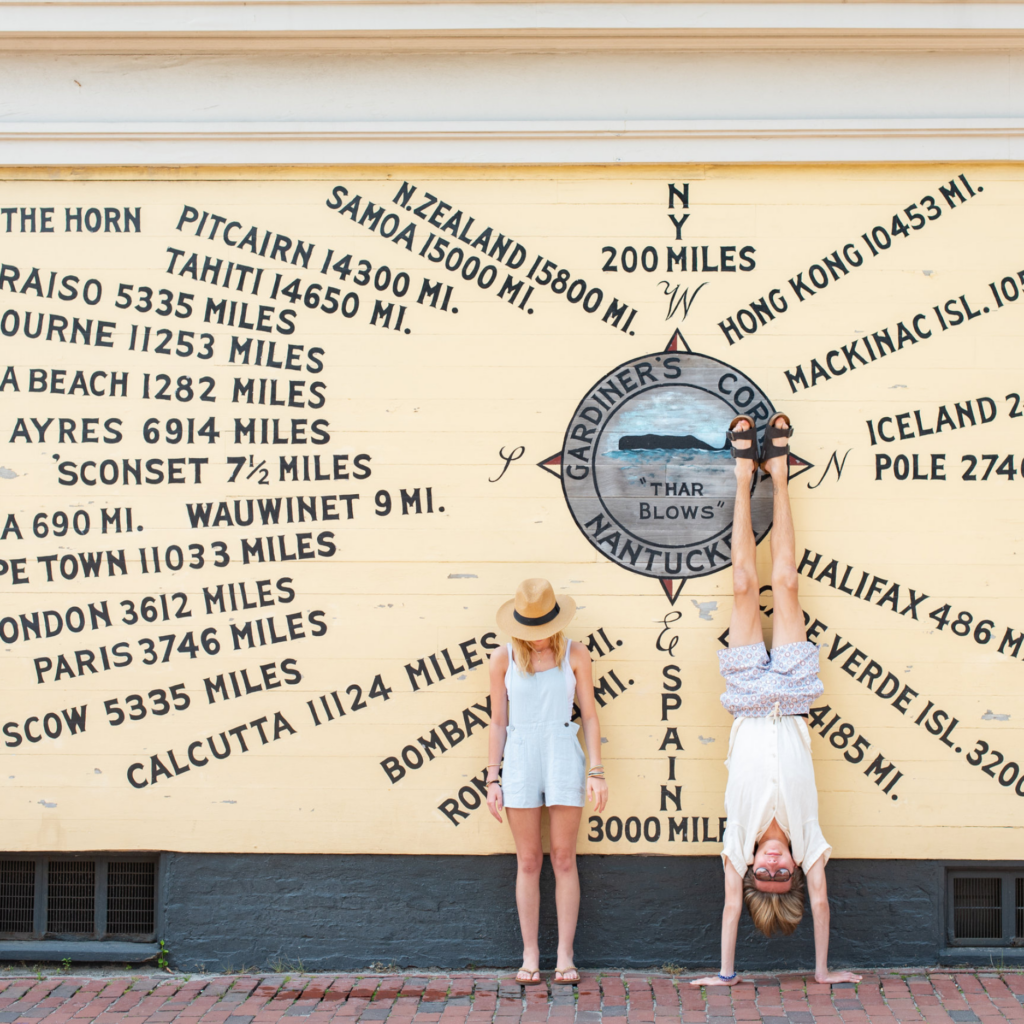 THE HORN
PITCAIRN 14300 MI.
TAHITI 14650 MI.
SAMOA 15000 MI.
N. ZEALAND 15800 MI.
RAISO 5335 MILES
OURNE 11253 MILES
A BEACH 1282 MILES
AYRES 6914 MILES
'SCONSET 7½ MILES
A 690 MI.
WAUWINET 9 MI.
PE TOWN 11033 MILES
ONDON 3612 MILES
PARIS 3746 MILES
SCOW 5335 MILES
CALCUTTA 11124 MILES
BOMBAY
MI.
MI.
NY
200 MILES
W
HONG KONG 10453 MI.
MACKINAC ISL. 105
ICELAND 2
POLE 2740
N
S
GARDINER'S COR
"THAR
BLOWS"
NANTUCKE
E
SPAIN
3000 MILE
HALIFAX 486 M
VERDE ISL. 3200
4185 MI.